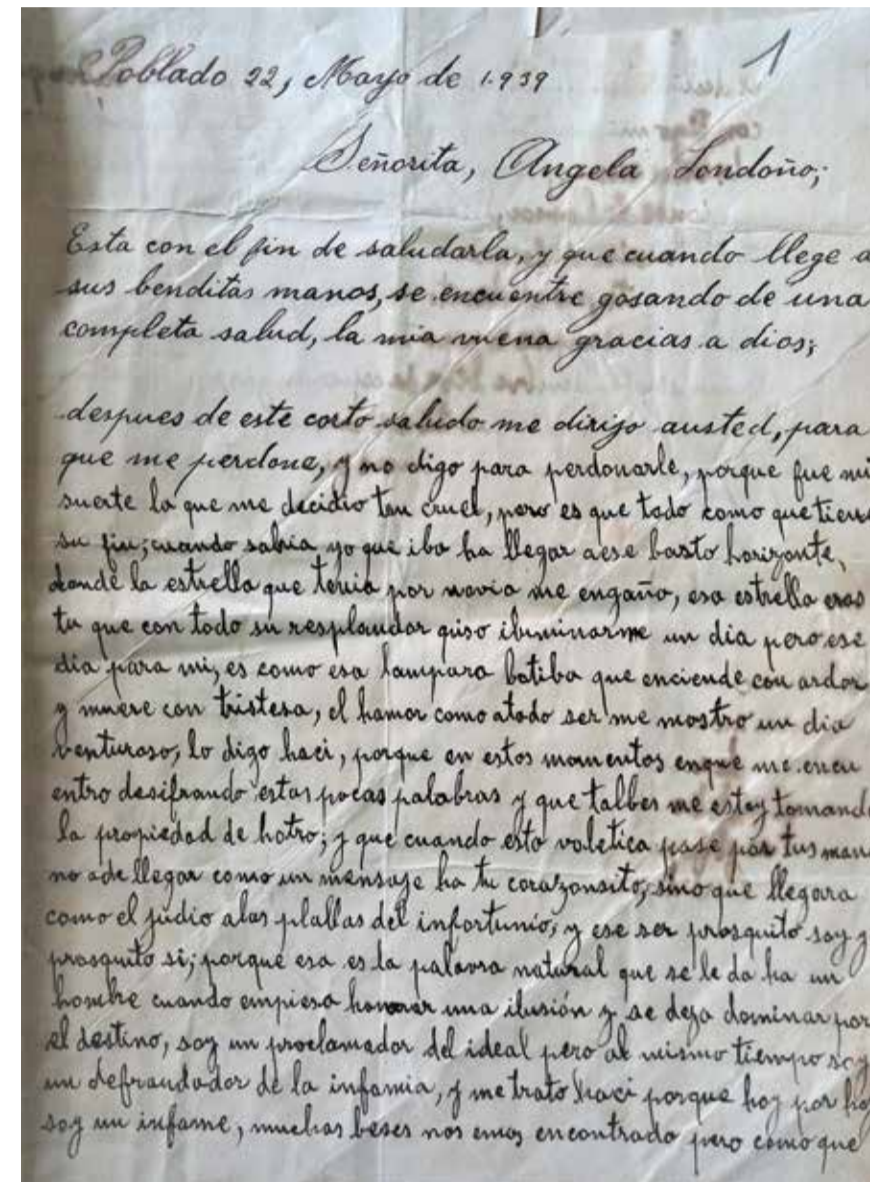 1
Poblado 22, Mayo de 1.939
Señorita, Angela Londoño;
Esta con el fin de saludarla, y que cuando llege a
sus benditas manos, se encuentre gosando de una
completa salud, la mia vuena gracias a dios;
despues de este corto saludo me dirijo austed, para
que me perdone, y no digo para perdonarle, porque fue mi
suerte la que me decidio tan cruel, pero es que todo como que tiene
su fin; cuando sabia yo que iba ha llegar aese basto horizonte,
donde la estrella que tenia por novia me engaño, esa estrella eras
tu que con todo su resplandor quiso ibuminarme un dia pero ese
dia para mi, es como esa lampara botiba que enciende con ardor
y muere con tristesa, el hamor como atodo ser me mostro un dia
venturoso, lo digo haci, porque en estos momentos enque me encu
entro desifrando estas pocas palabras y que talbes me estoy tomando
la propiedad de hotro; y que cuando esta voletica pase por tus man
no ade llegar como un mensaje ha tu corazonsito, sino que llegara
como el judio alas plallas del infortunio, y ese ser prosquito soy y
prosquito si; porque esa es la palavra natural que se le da ha un
hombre cuando empiesa una ilusión y se deja dominar por
el destino, soy un proclamador del ideal pero al mismo tiempo soy
un defraudador de la infamia, y me trato haci porque hoy por hoy
soy un infame, muchas beses nos emos encontrado pero como que